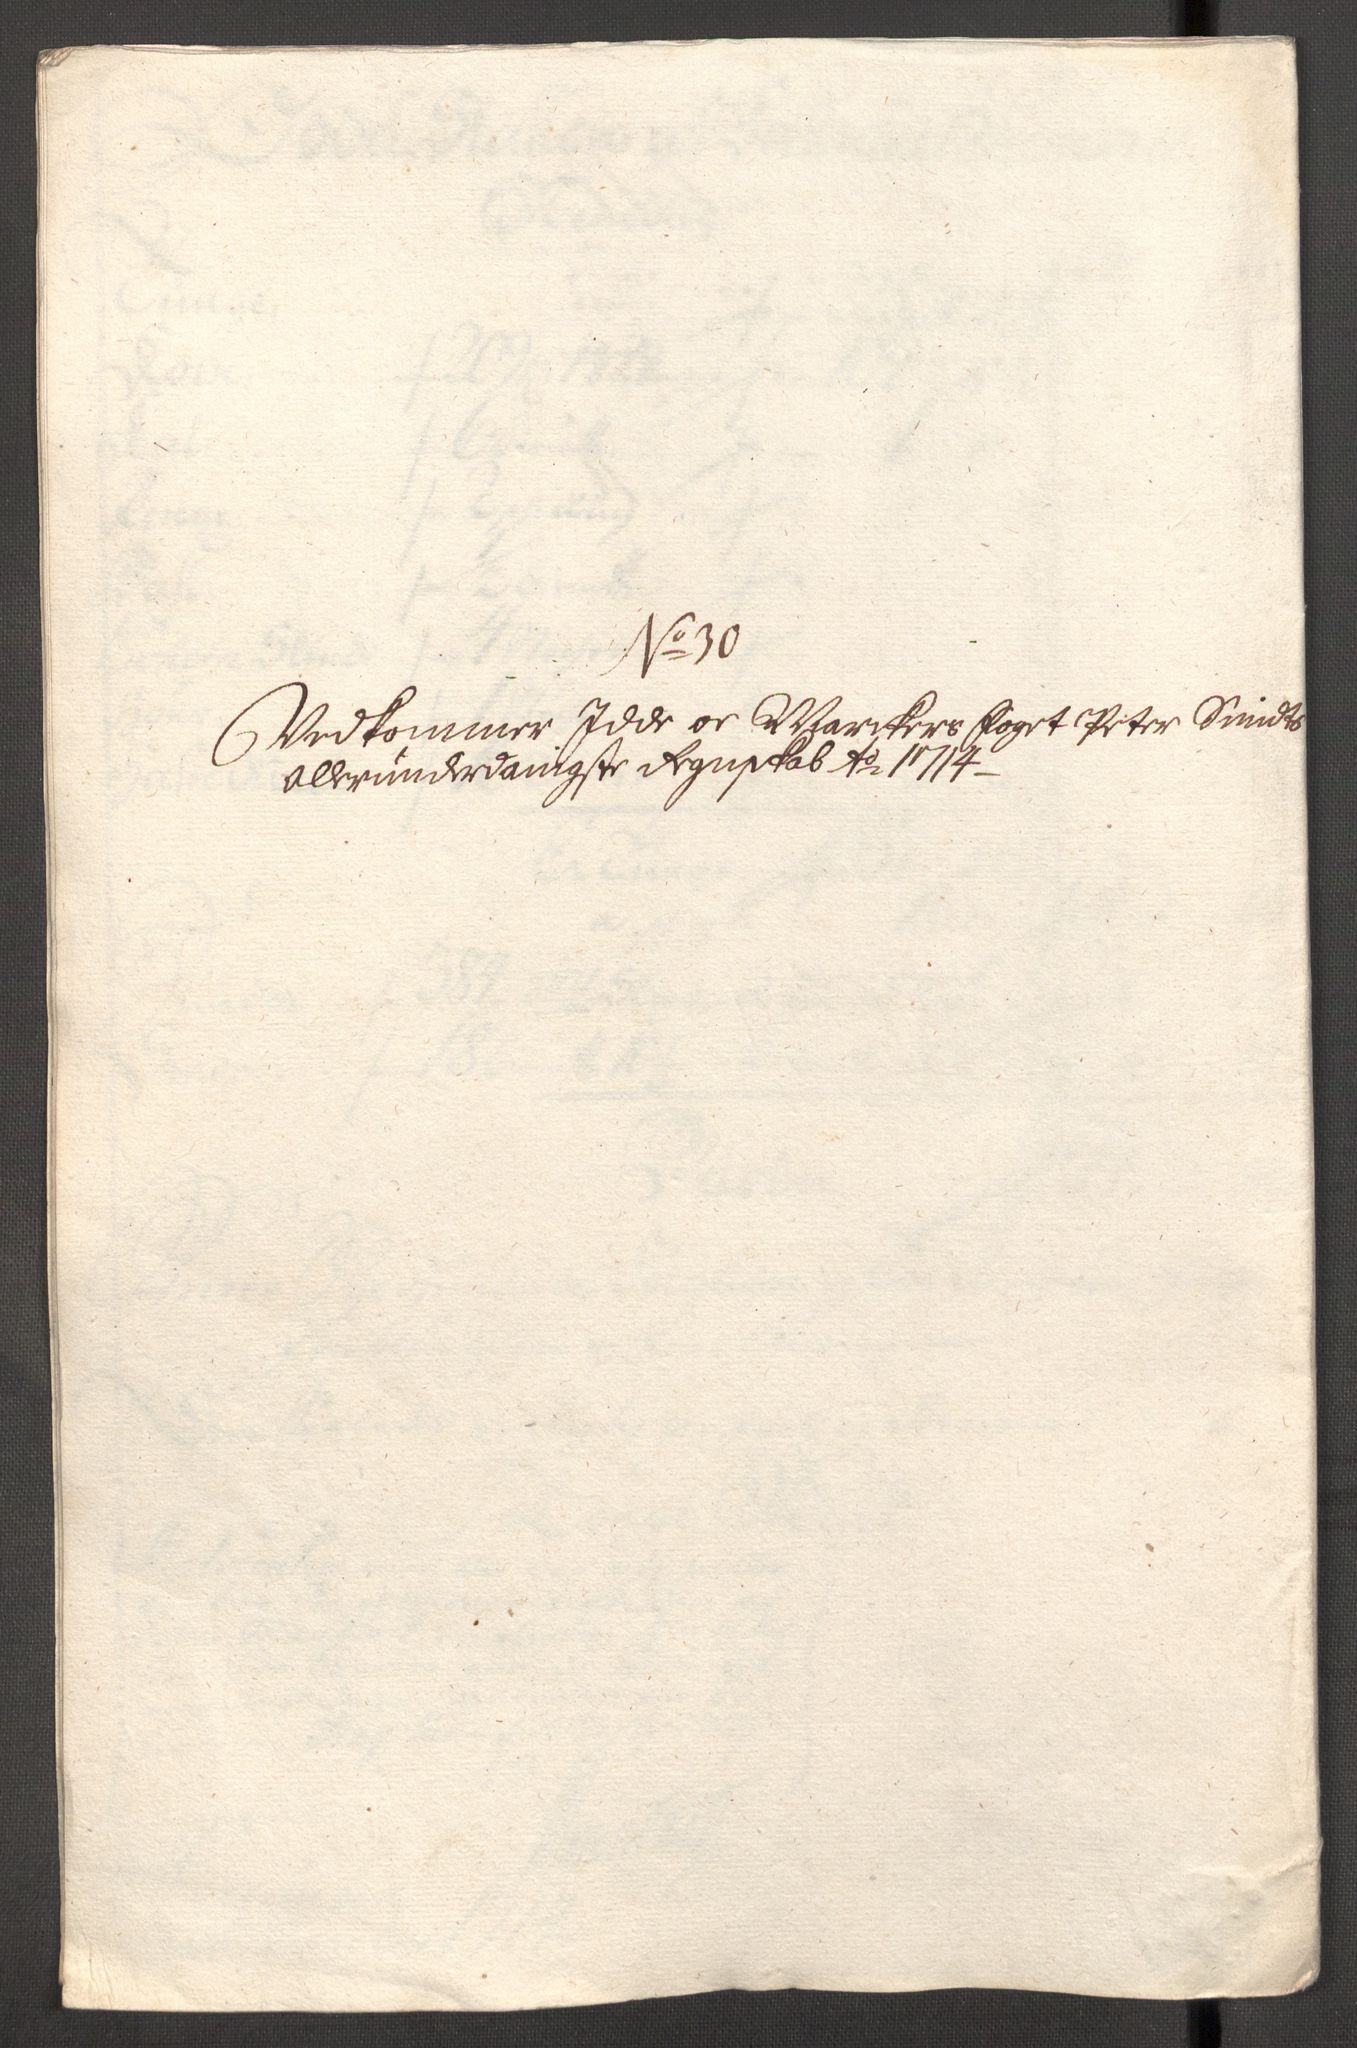 No 30
Vedkommer Idde oc Marckers foget Peter Smidts
allerunderdanigste Regnskab Ao 1714